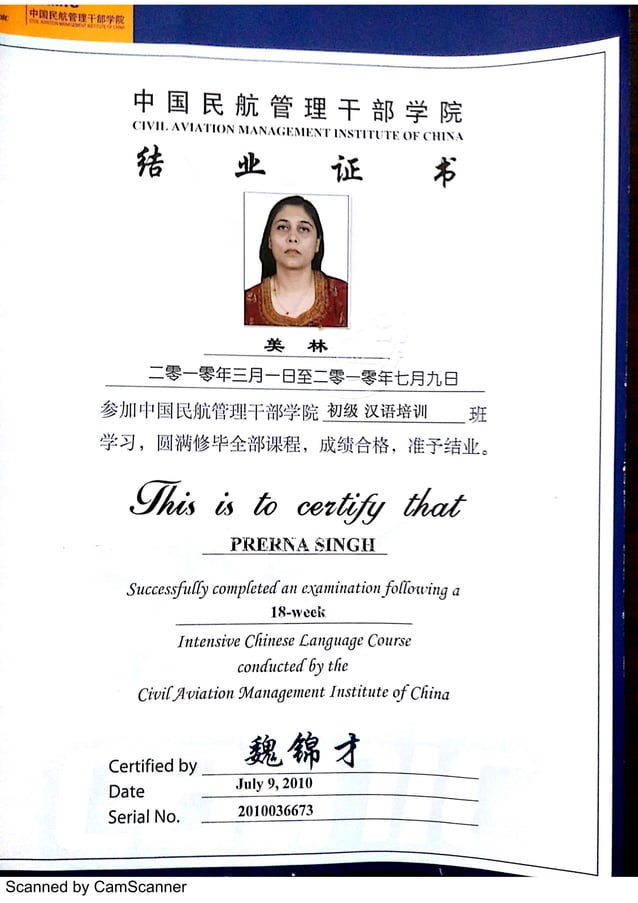 中国民航管理干部学院
CIVIL AVIATION MANAGEMENT INSTITUTE OF CHINA
中国民航管理干部学院
CIVIL AVIATION MANAGEMENT INSTITUTE OF CHINA
结业证书
美 林
二零一零年三月一日至二零一零年七月九日
参加中国民航管理干部学院 初级 汉语培训 班
学习，圆满修毕全部课程，成绩合格，准予结业。
This is to certify that
PRERNA SINGH
Successfully completed an examination following a
18-week
Intensive Chinese Language Course
conducted by the
Civil Aviation Management Institute of China
Certified by 魏锦才
Date July 9, 2010
Serial No. 2010036673
Scanned by CamScanner